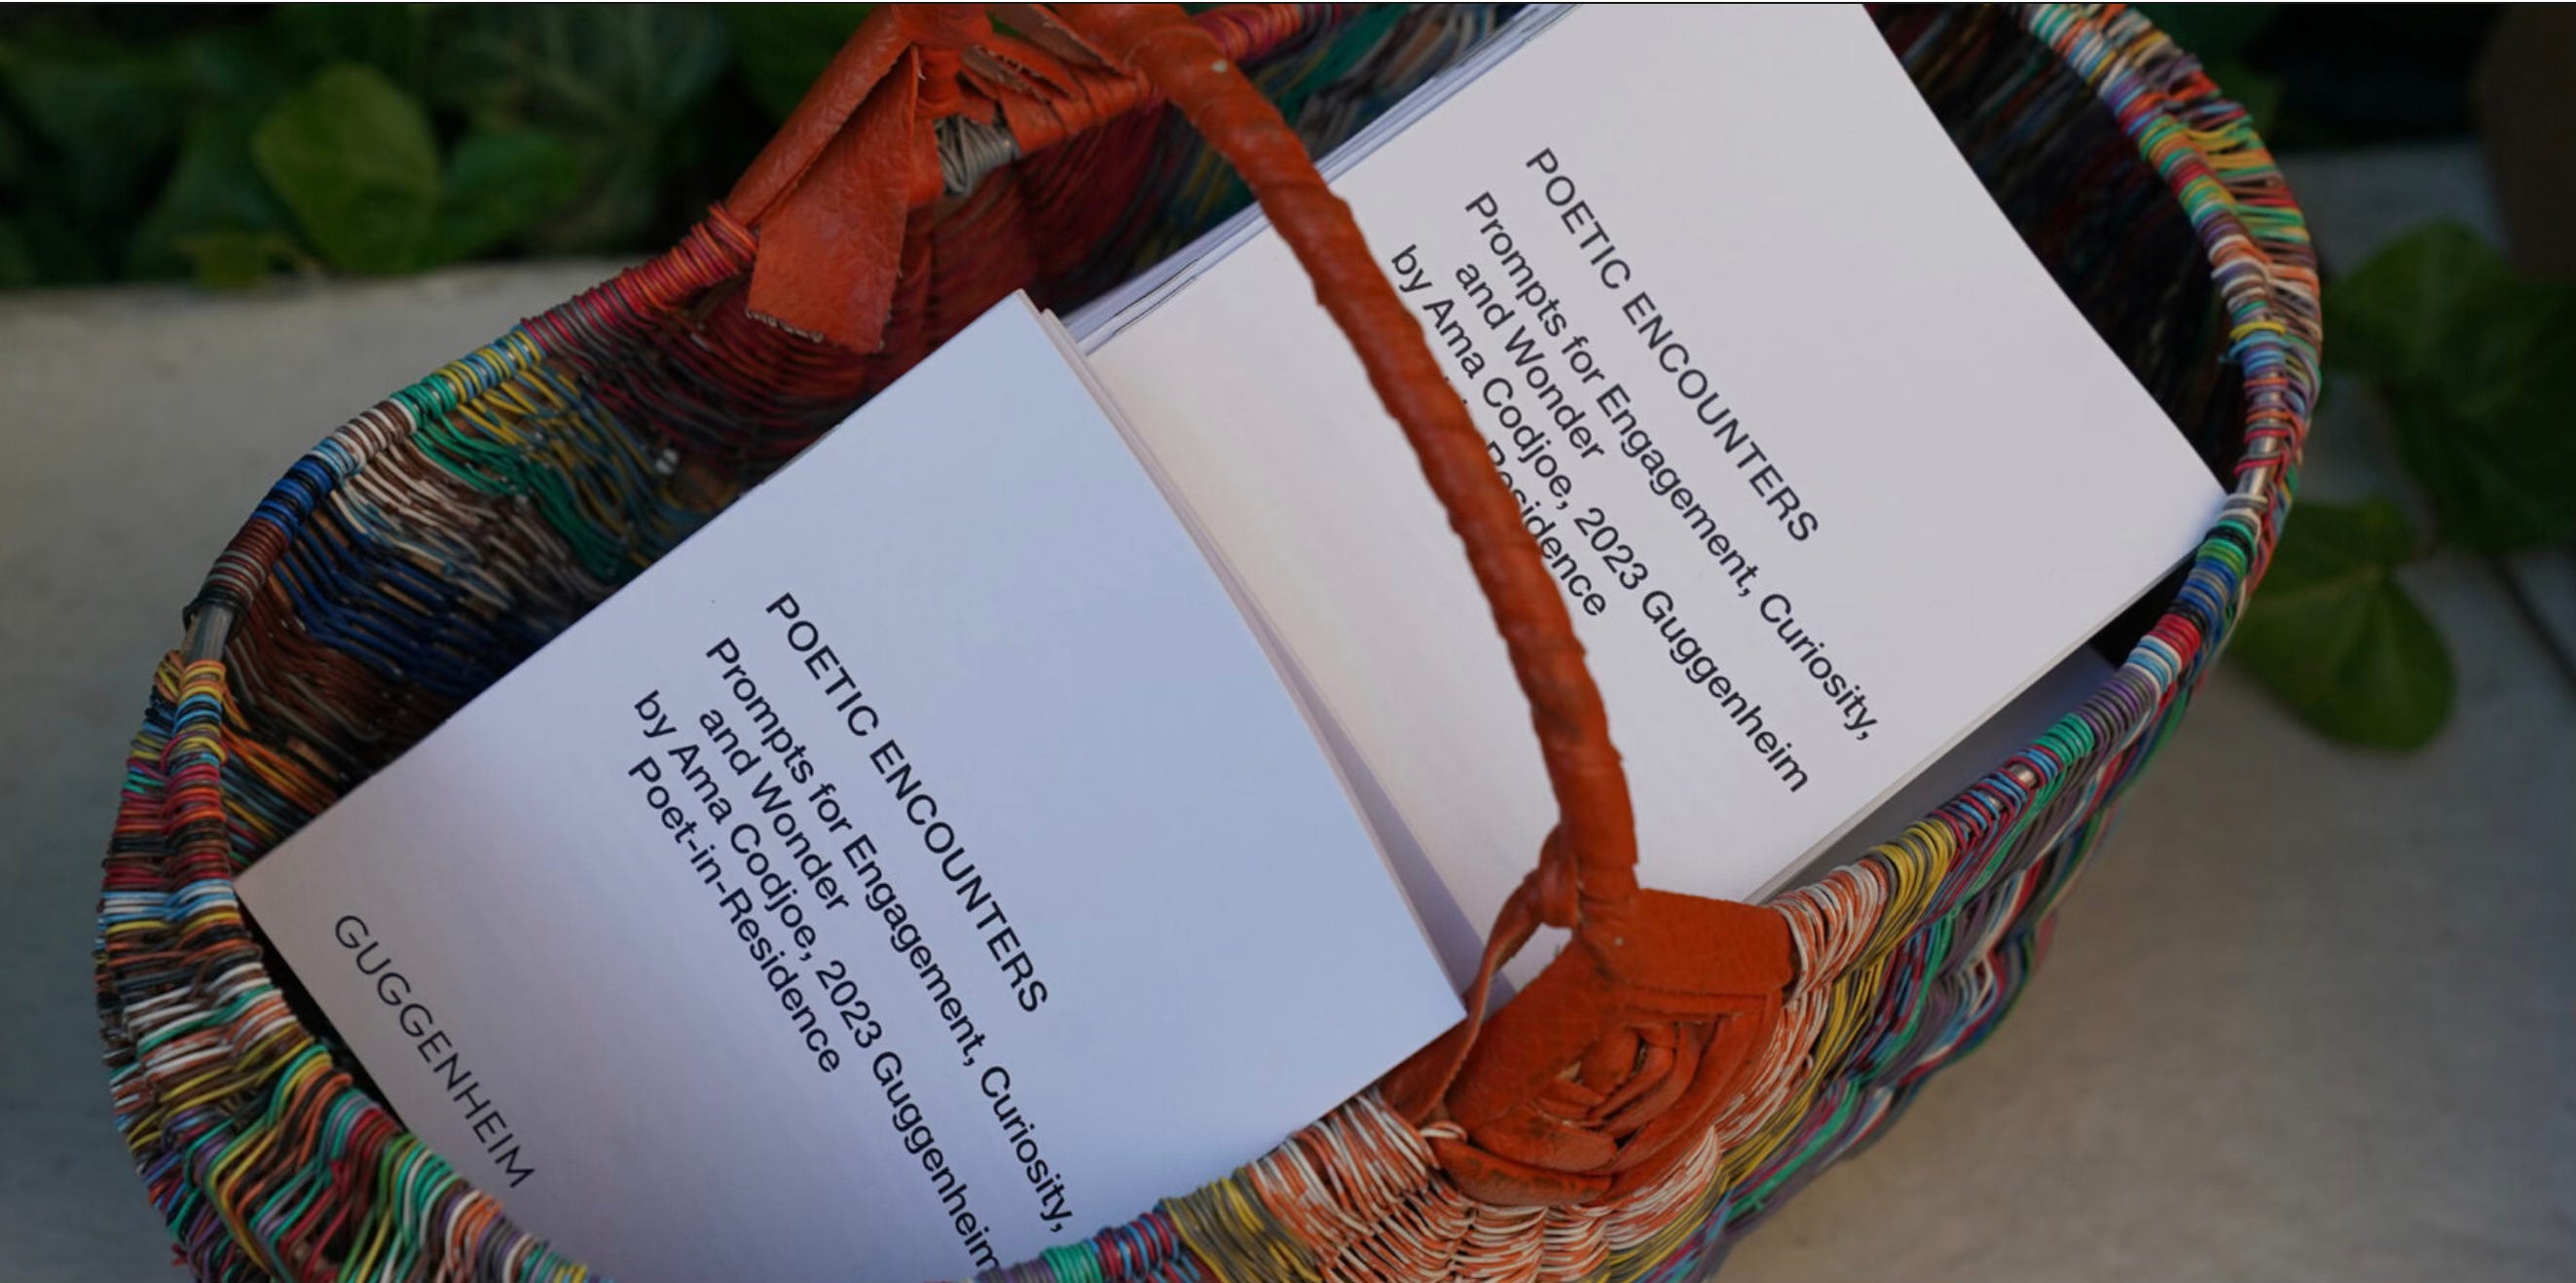 POETIC ENCOUNTERS
Prompts for Engagement, Curiosity,
and Wonder
by Ama Codjoe, 2023 Guggenheim
Poet-in-Residence
GUGGENHEIM
POETIC ENCOUNTERS
Prompts for Engagement, Curiosity,
and Wonder
by Ama Codjoe, 2023 Guggenheim
Residence